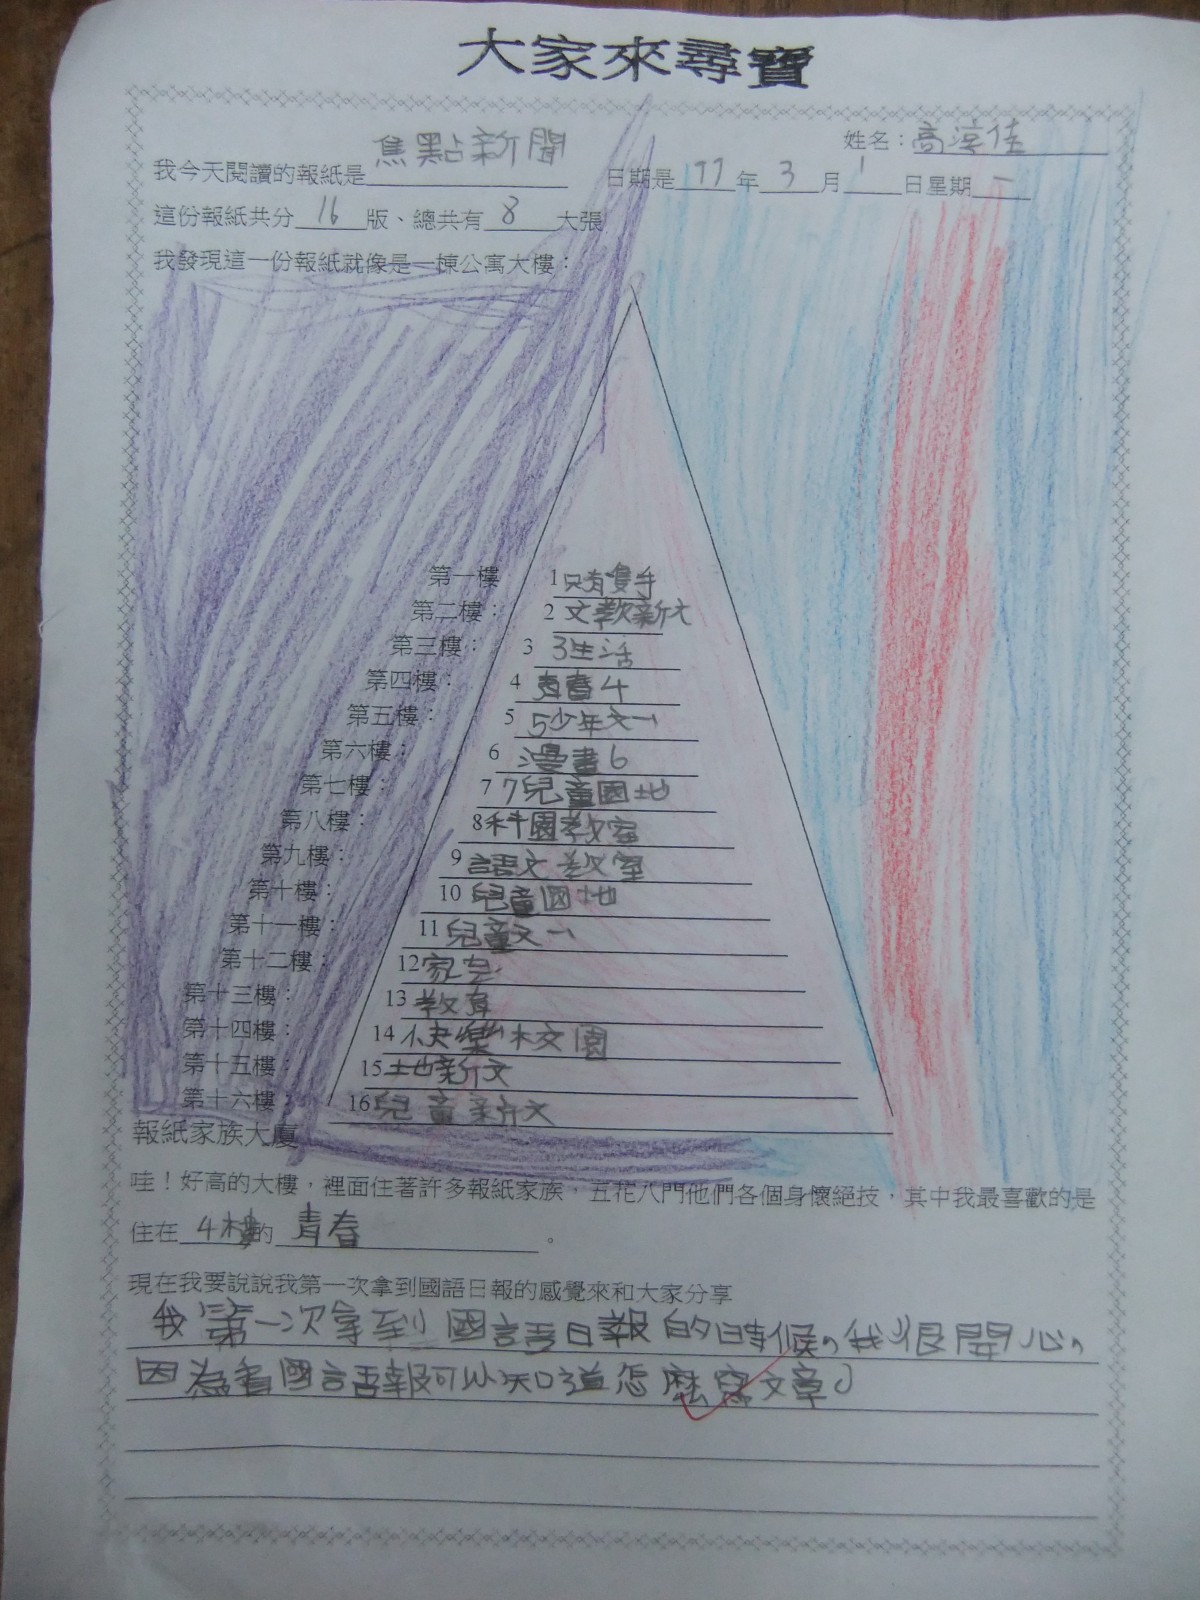 大家來尋寶
姓名：高淳佳
我今天閱讀的報紙是焦點新聞 日期是 77 年 3 月 1 日星期 一
這份報紙共分 16 版、總共有 8 大張
我發現這一份報紙就像是一棟公寓大樓：
第一樓 1 只有雙手
第二樓： 2 文教新文
第三樓： 3 3生活
第四樓： 4 青春4
第五樓： 5 5少年文一
第六樓： 6 漫畫6
第七樓： 7 7兒童園地
第八樓： 8 科園教室
第九樓： 9 語文教室
第十樓： 10 兒童園地
第十一樓： 11 兒童文一
第十二樓： 12 家
第十三樓： 13 教育
第十四樓： 14 快樂校園
第十五樓： 15 地新文
第十六樓： 16 兒童新文
報紙家族大廈
哇！好高的大樓，裡面住著許多報紙家族，五花八門他們各個身懷絕技，其中我最喜歡的是
住在 4樓的 青春 。
現在我要說說我第一次拿到國語日報的感覺來和大家分享
我第一次拿到國語日報的時候，我很開心，
因為看國語報可以知道怎麼寫文章。